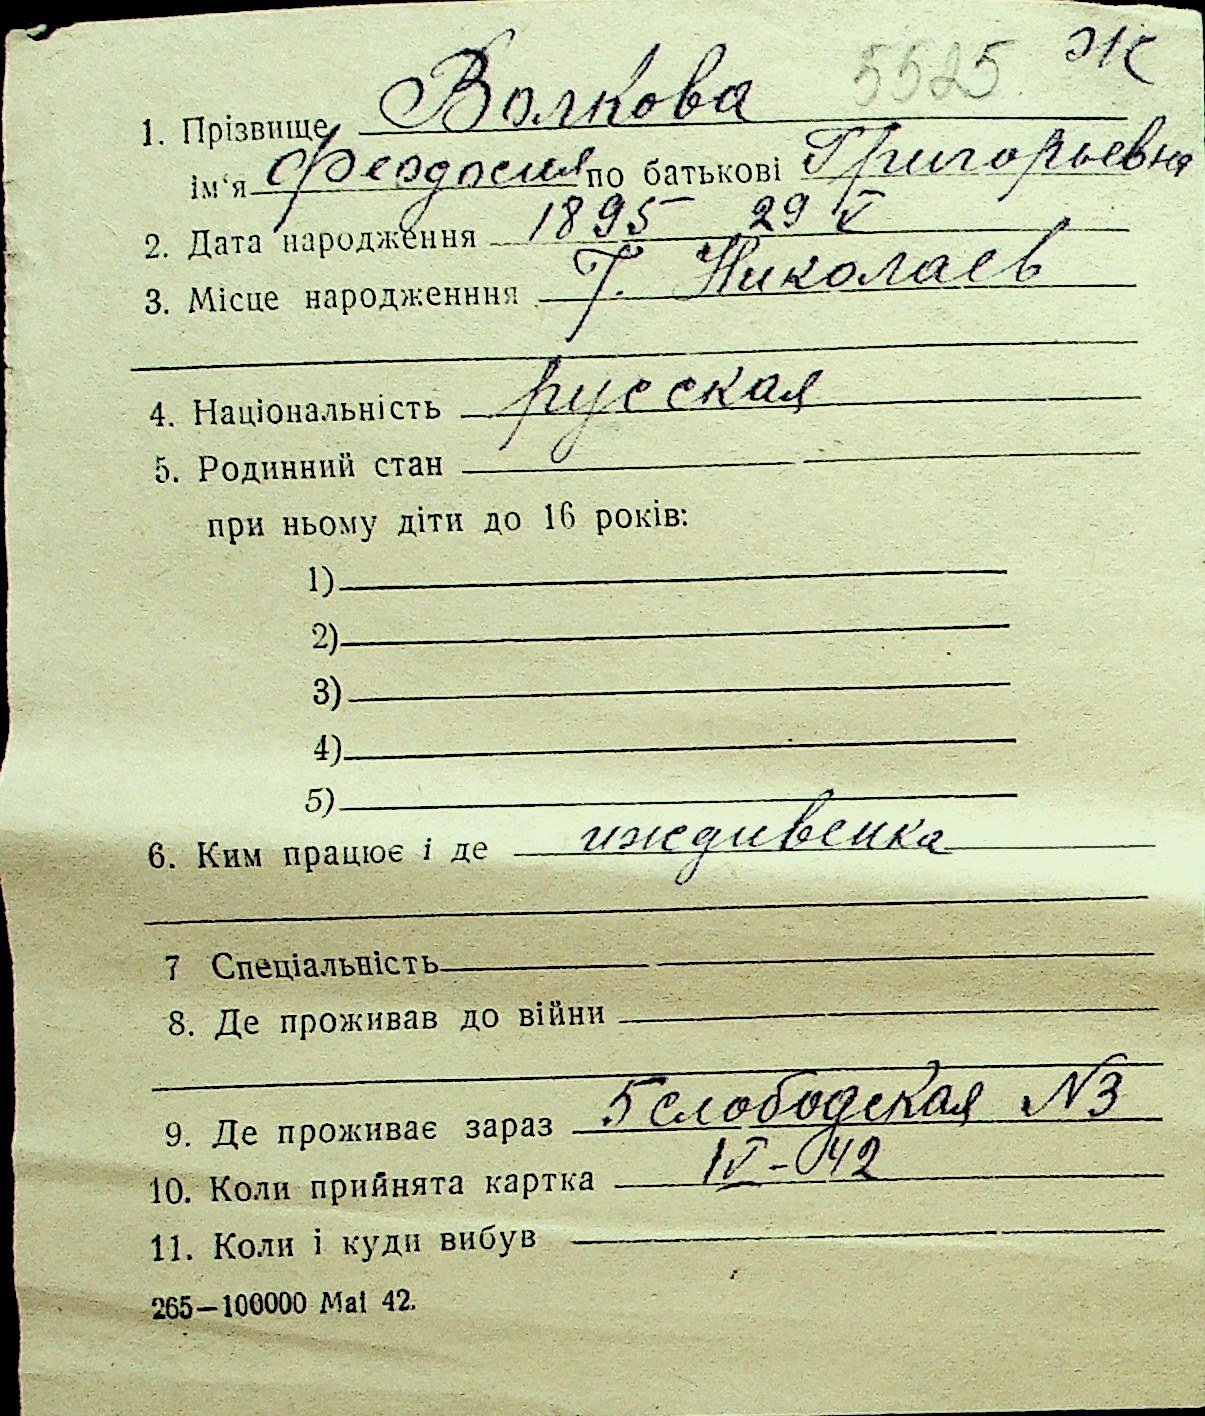 5525 Ж
1. Прізвище Волкова
ім‘я Феодосия по батькові Григорьевна
2. Дата народження 1895 29 V
3. Місце народженння Г. Николаев
4. Національність русская
5. Родинний стан
при ньому діти до 16 років:
1)
2)
3)
4)
5)
6. Ким працює і де иждивенка
7 Спеціальність
8. Де проживав до війни
9. Де проживає зараз 5 слободская №3
10. Коли прийнята картка IV - 42
11. Коли і куди вибув
265—100000 Mai 42.